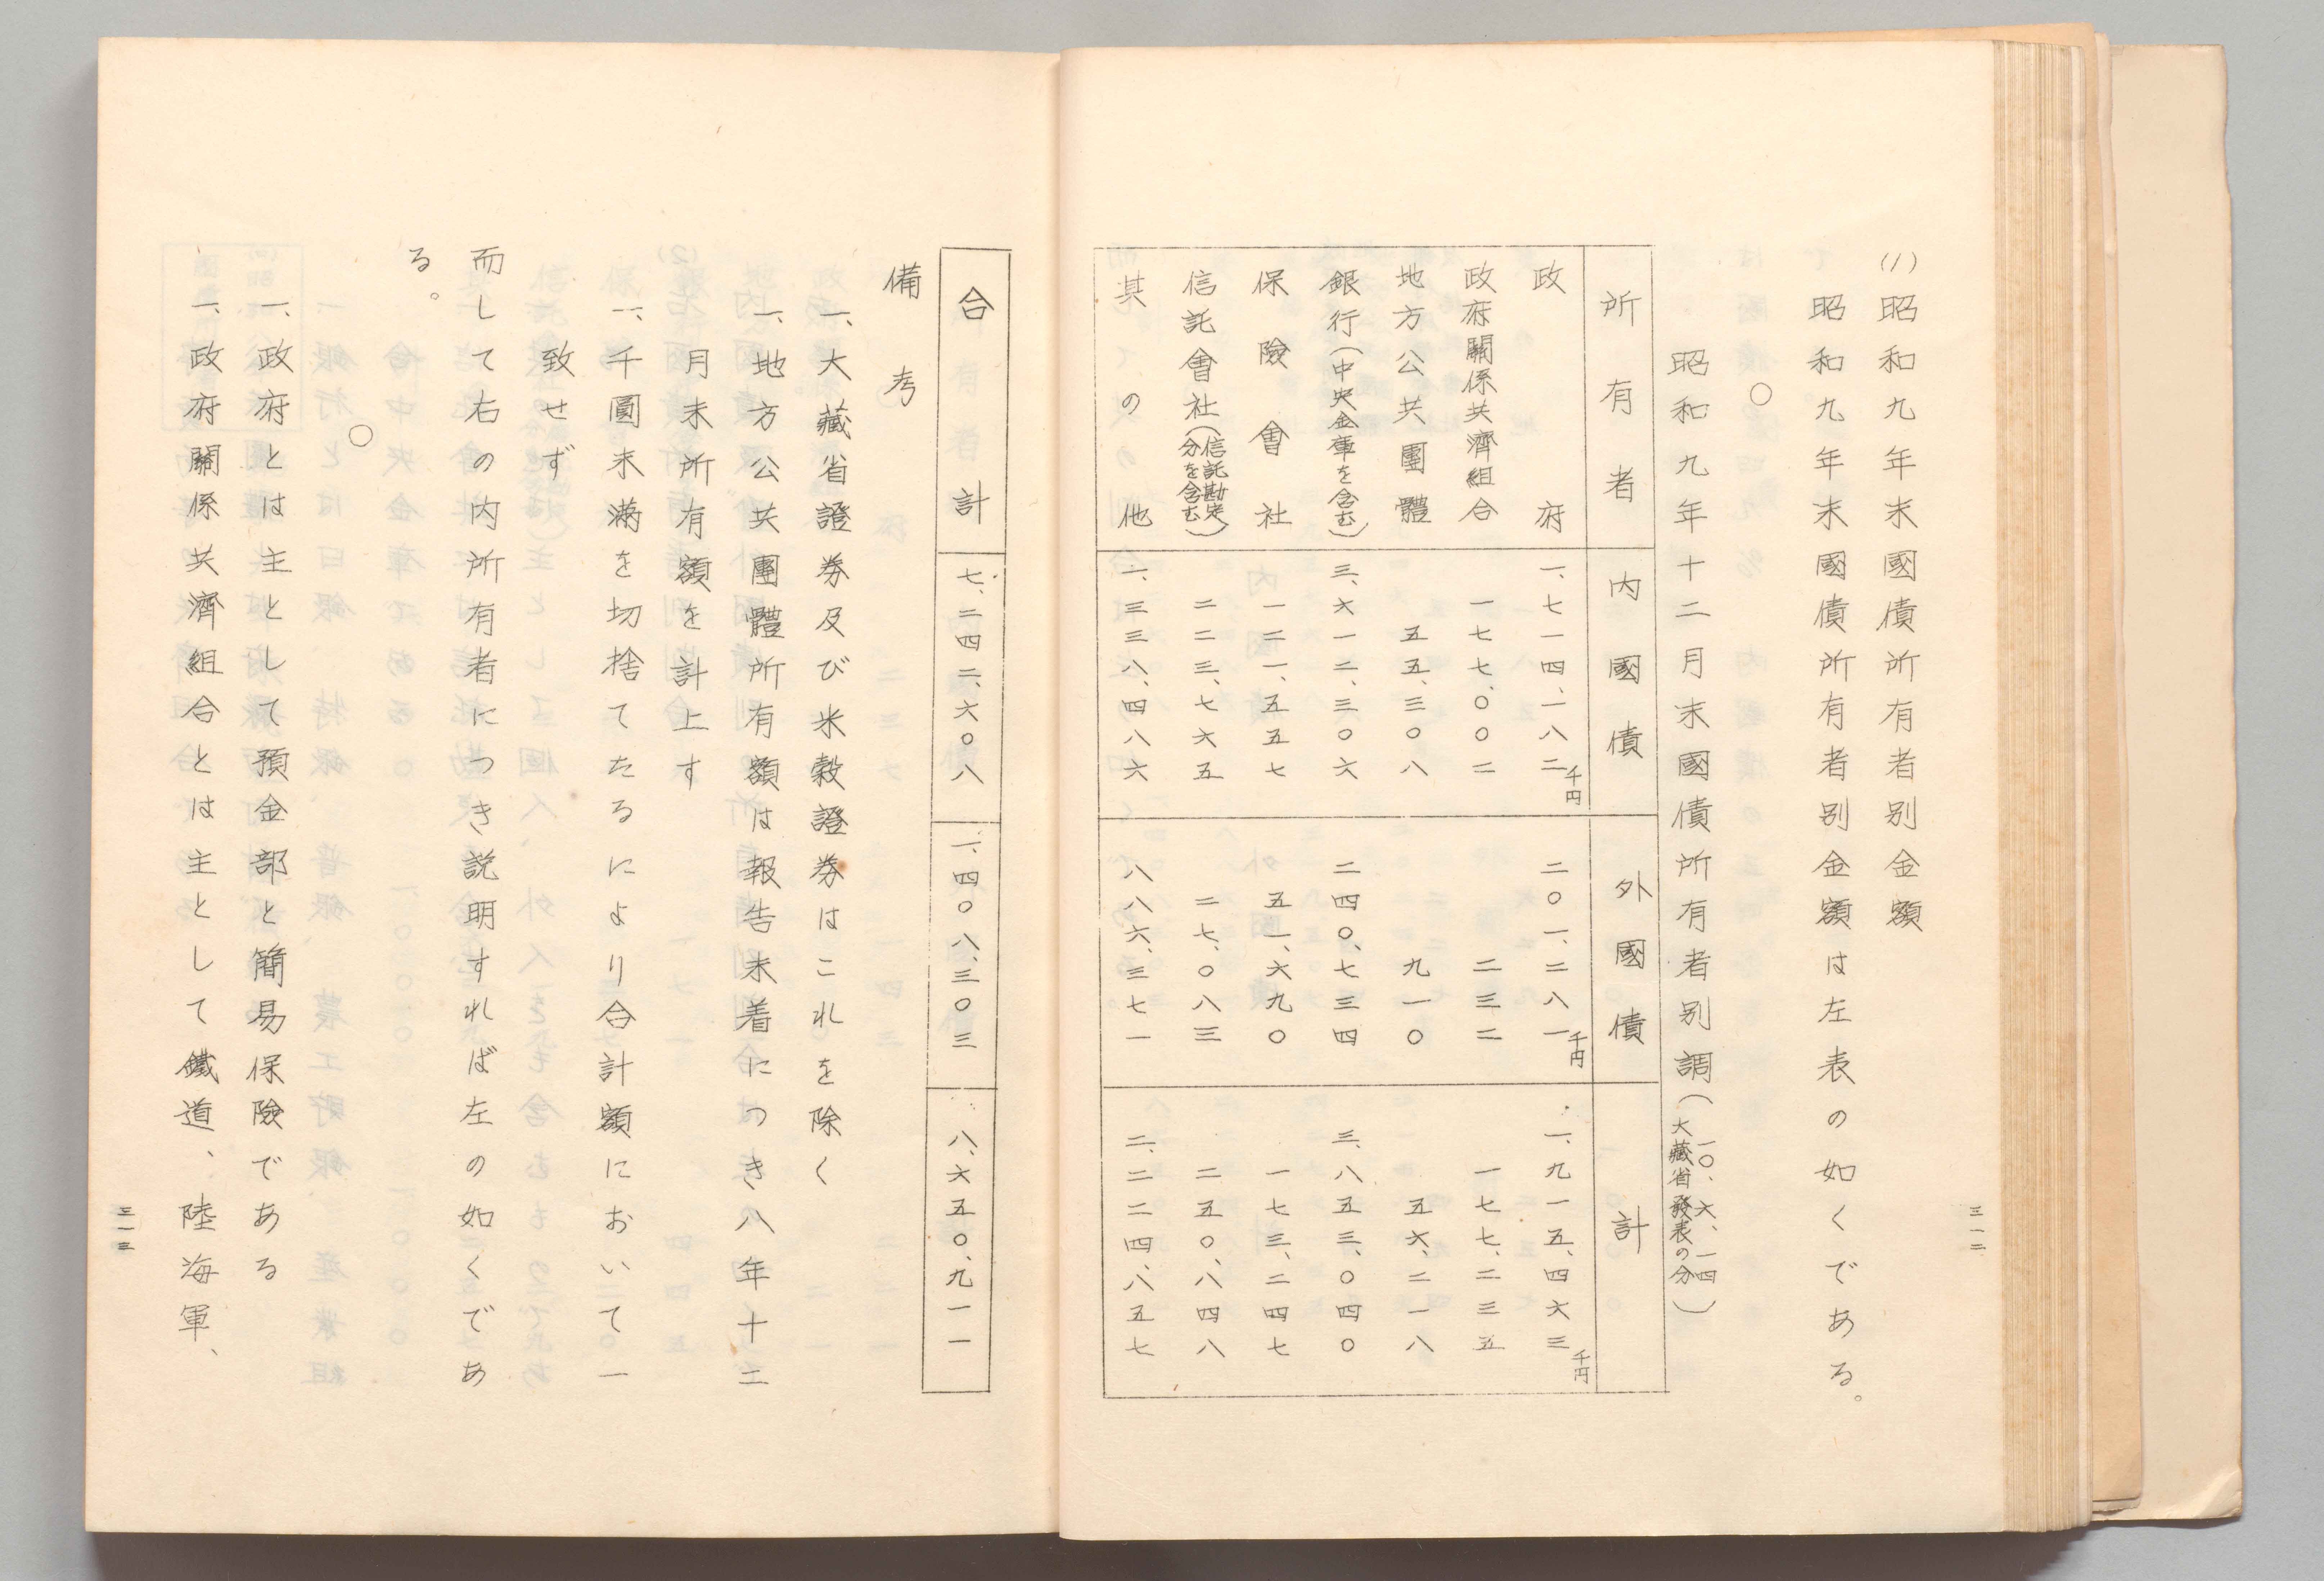 (1)昭和九年末國債所有者別金額
昭和九年末國債所有者別金額は左表の如くである。
○
昭和九年十二月末國債所有者別調(一〇、六、一四大藏省發表の分)
所有者 内國債 外國債 計
政府 一、七一四、一八二千円 二〇一、二八一千円 一、九一五、四六三千円
政府關係共濟組合 一七七、〇〇二 二三二 一七七、二三五
地方公共團體 五五、三〇八 九一〇 五六、二一八
銀行(中央金庫を含む) 三、六一二、三〇六 二四〇、七三四 三、八五三、〇四〇
保險會社 一二一、五五七 五一、六九〇 一七三、二四七
信託會社(信託勘定分を含む) 二二三、七六五 二七、〇八三 二五〇、八四八
其の他 一、三三八、四八六 八八六、三七一 二、二二四、八五七
三一二
合計 七、二四二、六〇八 一、四〇八、三〇三 八、六五〇、九一一
備考
一、大藏省證券及び米穀證券はこれを除く
一、地方公共團體所有額は報告未着につき八年十二
月末所有額を計上す
一、千圓未滿を切捨てたるにより合計額において一
致せず
而して右の内所有者につき説明すれば左の如くであ
る。
○
一、政府とは主として預金部と簡易保險である
一、政府關係共濟組合とは主として鐵道、陸海軍、
三一三